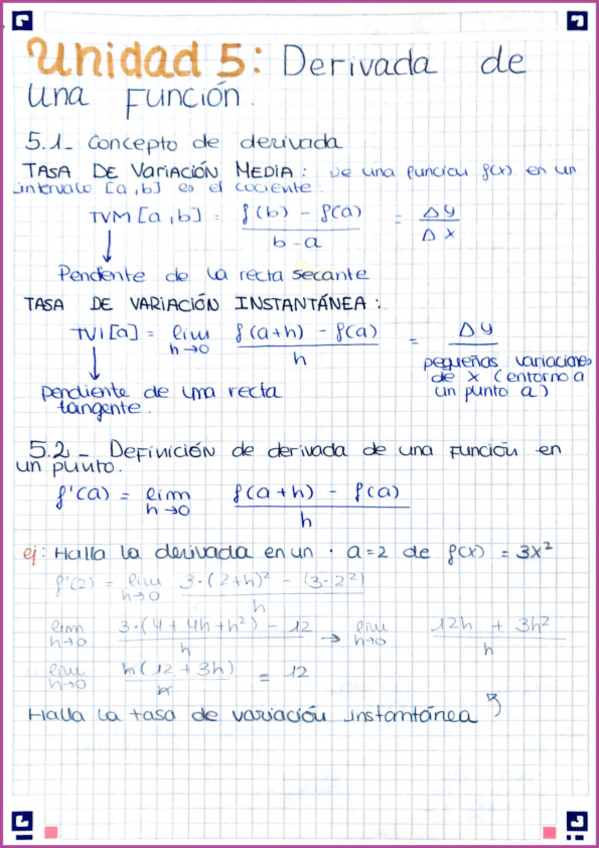 Unidad 5: Derivada de
una Función.
5.1- Concepto de derivada
TASA DE VARIACIÓN MEDIA: De una función f(x) en un
intervalo [a,b] es el cociente:
TVM [a,b] = f(b) - f(a) / b-a = Δy / Δx
↓
Pendente de la recta secante
TASA DE VARIACIÓN INSTANTÁNEA:
TVI[a] = lim h→0 f(a+h) - f(a) / h = Δy / pequeñas variaciones de x (entorno a un punto a)
↓
pendiente de una recta
tangente.
5.2 - Definición de derivada de una Función en
un punto.
f'(a) = lim h→0 f(a+h) - f(a) / h
ej: Halla la derivada en un · a=2 de f(x) = 3x²
f'(2) = lim h→0 3·(2+h)² - (3·2²) / h
lim h→0 3·(4+4h+h²) - 12 / h → lim h→0 12h + 3h² / h
lim h→0 h(12+3h) / h = 12
Halla la tasa de variación instantánea